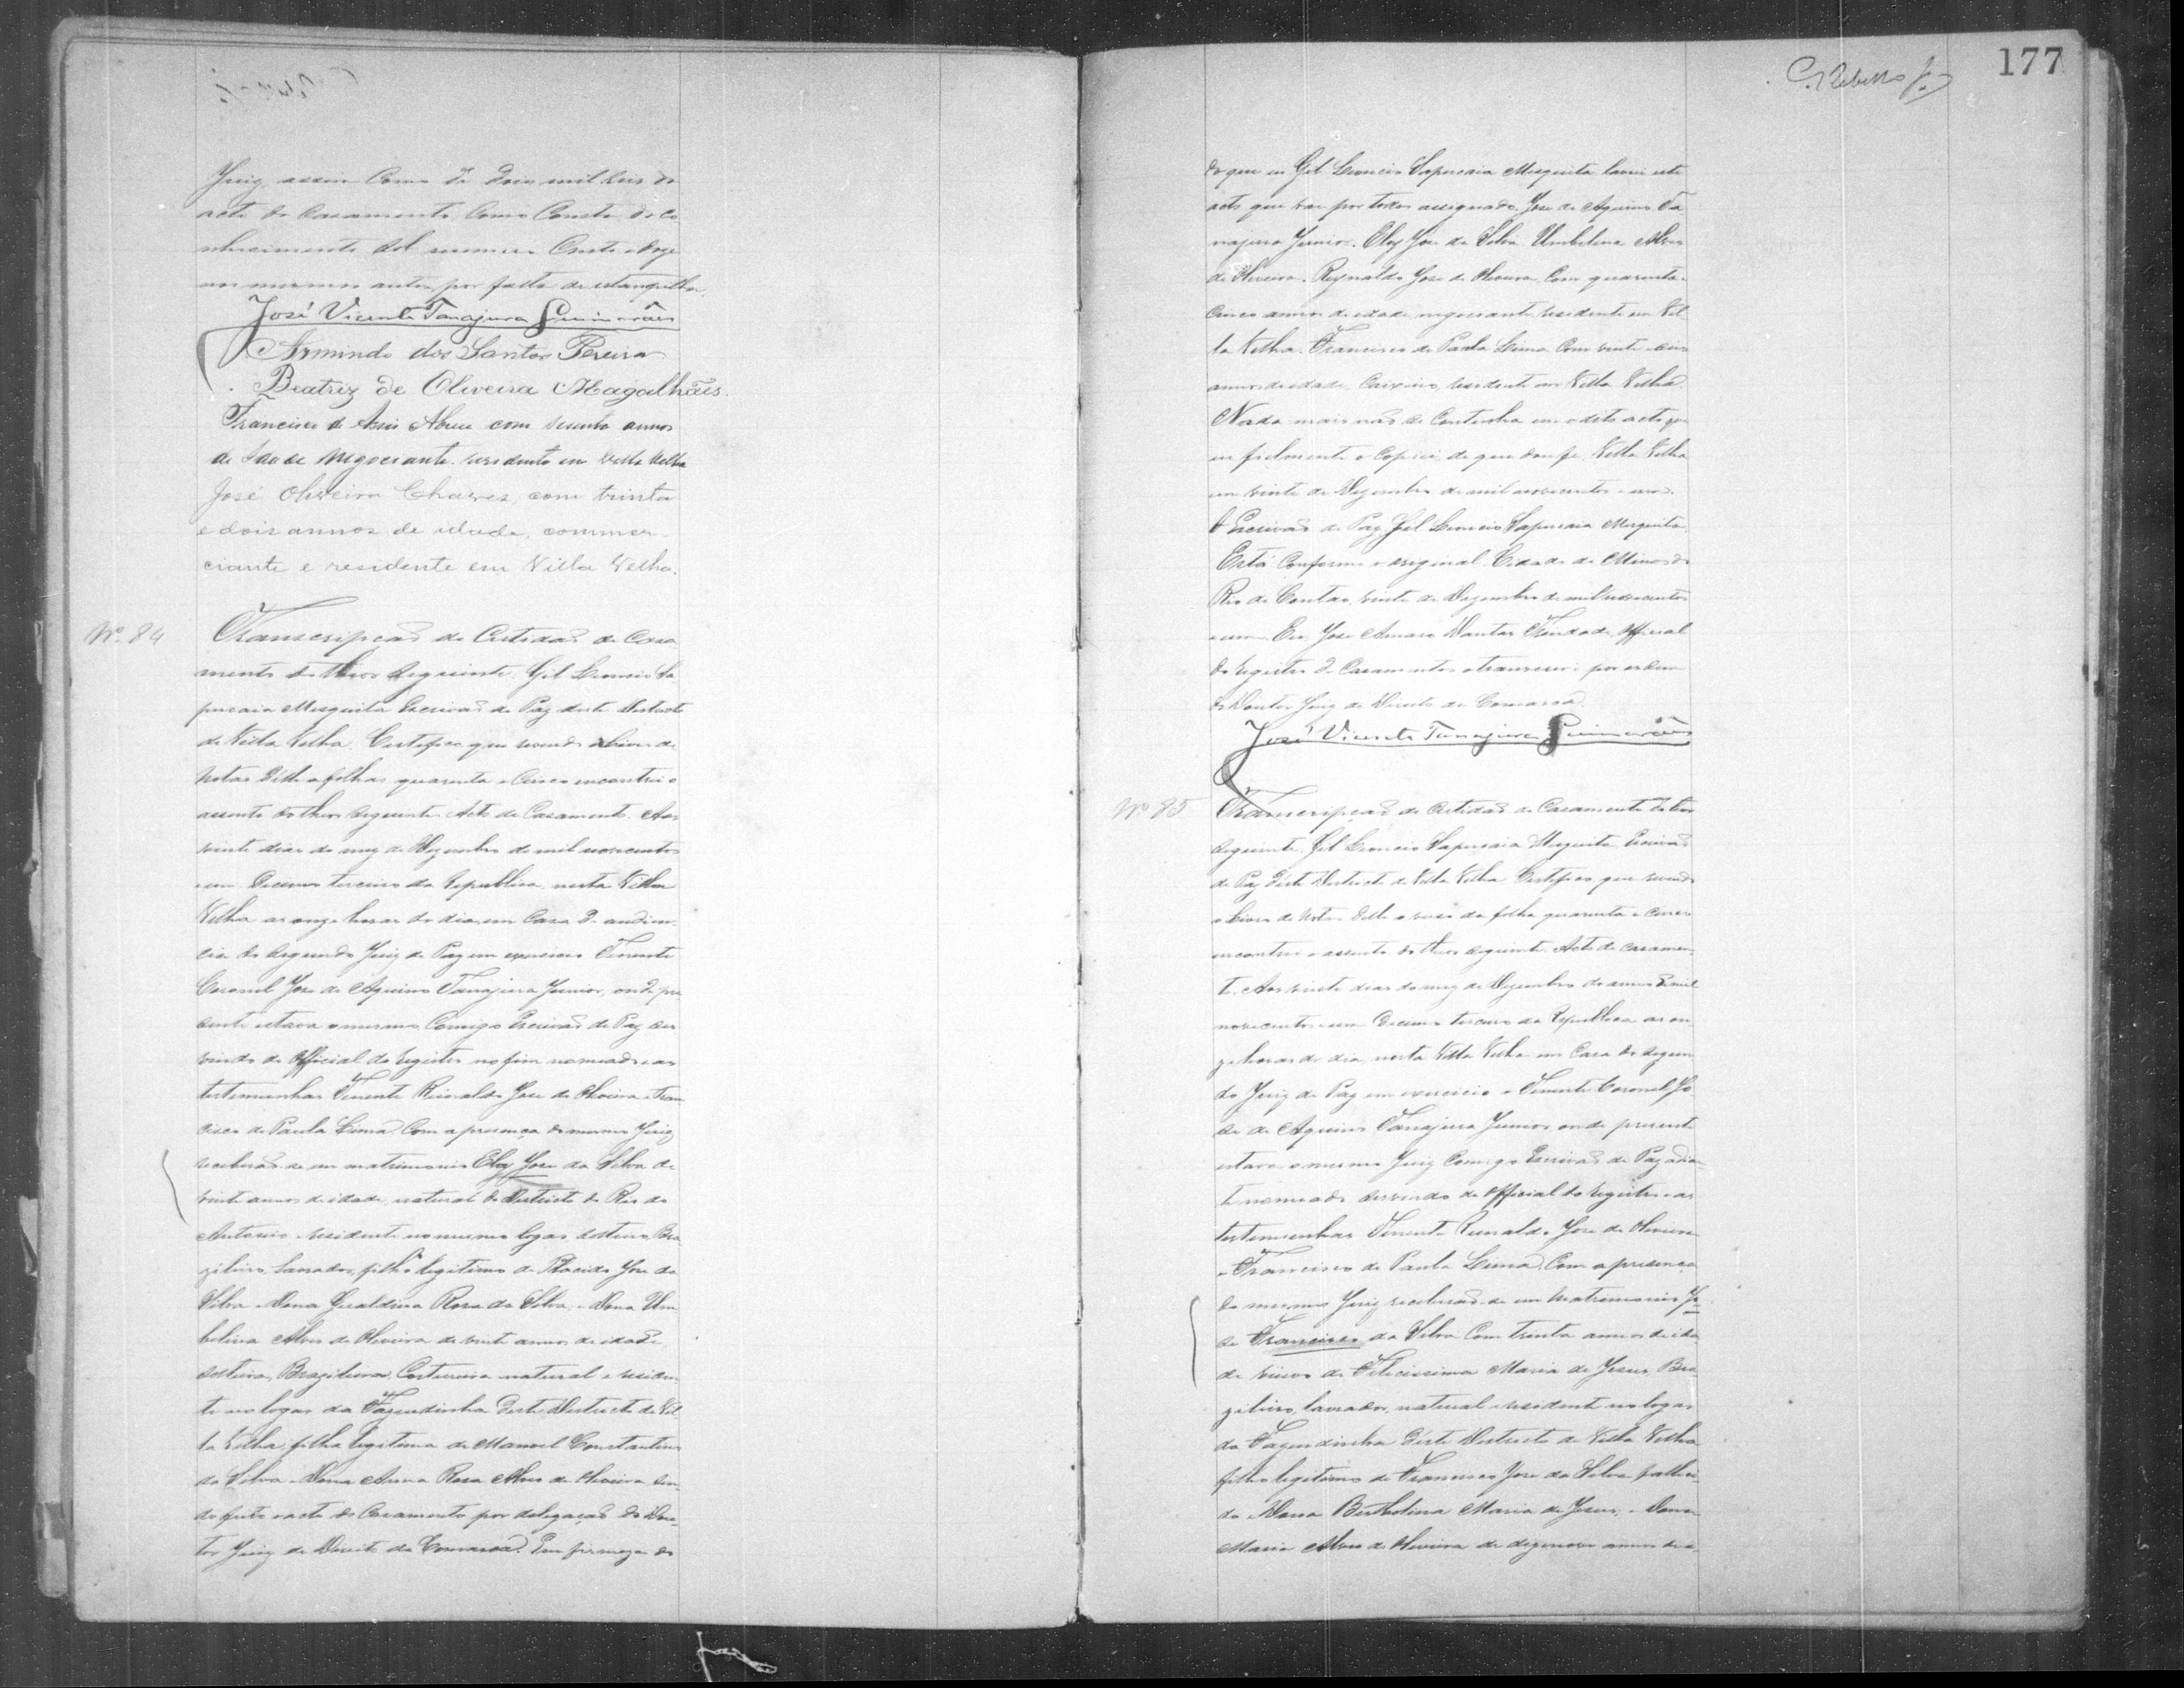 Juiz assim Como de dois mil reis do
acto do Casamento Como Consta do co
nhecimento sob numero Cento e doze
nos mesmos autos, por falta de estampilha.
José Vicente Tanajura Guimarães
Armindo dos Santos Pereira
Beatriz de Oliveira Magalhães.
Francisco de Assis Abreu com sesenta annos
de Idade Negociante residente em Villa Velha
José Oliveira Chaves, com trinta
e dois annos de idade, commer-
ciante e residente em Villa Velha.
Nº 84
Transcripção da Certidão de Casa
mento do theor seguinte. Gil Leoncio Sa
pucaia Mesquita Escrivão de Paz deste Districto
de Villa Velha. Certifico que revendo o livro de
Notas delle a folhas quarenta e Cinco encontrei o
assento do theor seguinte. Acto de Casamento. Aos
vinte dias do mez de Dezembro de mil novecentos
e um Decimo terceiro da Republica, nesta Villa
Velha as onze horas do dia, em Casa de audien-
cia do segundo Juiz de Paz em exercicio Tenente
Coronel Jose de Aquino Tanajura Junior, onde pre
sente estava o mesmo Comigo Escrivão de Paz ser
vindo de Official do registro no fim nomeado e as
testemunhas Tenente Rienaldo Jose de Oliveira e Fran
cisco de Paula Lima. Com a presença do mesmo Juiz
receberão-se em matrimonio Eloy Jose da Silva de
vinte annos de idade, natural do Districto do Rio do
Antonio residente no mesmo logar solteiro, Bra
zileiro, lavrador, filho legitimo de Placido Jose da
Silva e Dona Geraldina Rosa da Silva, e Dona Um
belina Alves de Oliveira de vinte annos de idade,
solteira, Brazileira, Costureira natural e residen
te no logar da Fazendinha deste Districto de Vil
la Velha, filha legitima de Manoel Constantino
da Silva e Dona Anna Rosa Alves de Oliveira sen-
do feito o acto do Casamento por delegação do Dou-
tor Juiz de Direito da Comarca. Em firmeza do
177
do que eu Gil Leoncio Sapucaia Mesquita lavrei este
acto que vae por todos assignado. Jose de Aquino Ta
najura Junior. Eloy Jose da Silva Umbelina Alves
de Oliveira. Reynaldo Jose de Oliveira, Com quarenta e
Cinco annos de idade, negociante, residente em Vil
la Velha. Francisco de Paula Lima Com vinte e seis
annos de idade, Caixeiro, residente em Villa Velha.
Nada mais não se Continha em o dito acto que
eu fielmente o Copiei, de que dou fe. Villa Velha
em vinte de Dezembro de mil novecentos e um.
O Escrivão de Paz Gil Leoncio Sapucaia Mesquita.
Está Conforme o original. Cidade de Minas do
Rio de Contas, vinte de Dezembro de mil novecentos
e um. Eu Jose Amaro Dantas Trindade, Official
do registro de Casamentos o transcrevi por ordem
do Doutor Juiz de Direito da Comarca.
José Vicente Tanajura Guimarães
Nº 85
Transcripção da Certidão de Casamento do teor
seguinte. Gil Leoncio Sapucaia Mesquita Escrivão
de Paz deste Districto de Villa Velha Certifico que revendo
o livro de Notas delle o verso da folha quarenta e Cinco
encontrei o assento do theor seguinte. Acto de casamen-
to. Aos vinte dias do mez de Dezembro do anno de mil
novecentos e um Decimo terceiro da Republica as on
ze horas do dia nesta Villa Velha em Casa do segun
do Juiz de Paz em exercicio o Tenente Coronel Jo
se de Aquino Tanajura Junior, onde presente
estava o mesmo Juiz Comigo Escrivão de Paz adian
te nomeado servindo de Official do registro e as
testemunhas Tenente Rienaldo Jose de Oliveira
e Francisco de Paula Lima. Com a presença
do mesmo Juiz receberão-se em Matrimonio Jo
se Francisco da Silva Com trinta annos de ida
de viuvo de Felicissima Maria de Jesus, Bra
zileiro, lavrador, natural e residente no logar
da Fazendinha deste Districto de Villa Velha
filho legitimo de Francisco Jose da Silva falleci-
do e Dona Berthulina Maria de Jesus, e Dona
Maria Alves de Oliveira de dezenove annos de i